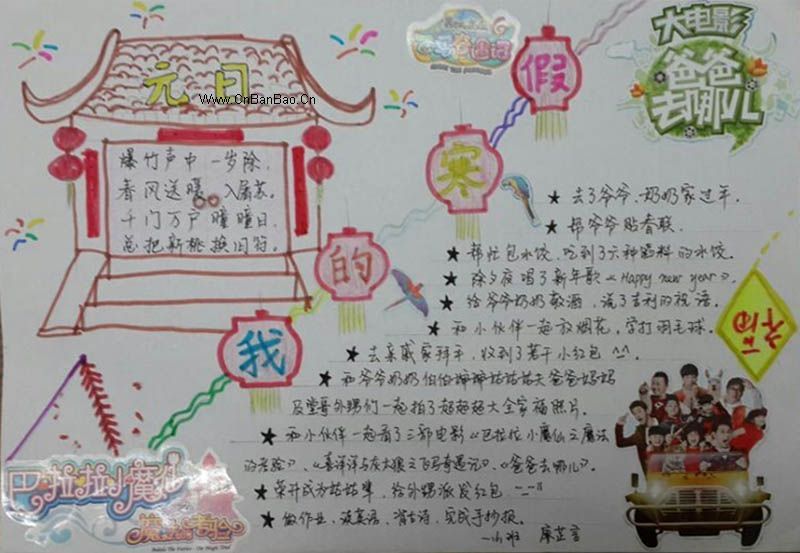 元日
www.OnBanBao.Cn
爆竹声中一岁除,
春风送暖入屠苏.
千门万户曈曈日,
总把新桃换旧符.
我的寒假
大电影
爸爸去哪儿
★ 去了爷爷、奶奶家过年.
★ 帮爷爷贴春联
★ 帮忙包水饺,吃到了六种馅料的水饺.
★ 除夕夜唱了新年歌《Happy new year》.
★ 给爷爷奶奶敬酒,说了吉利的祝语.
★ 和小伙伴一起放烟花,学打羽毛球.
★ 去亲戚家拜年,收到了若干小红包 ^^.
★ 和爷爷奶奶伯伯婶婶姑姑姑夫爸爸妈妈
及堂哥外甥们一起拍了超超超大全家福照片.
★ 和小伙伴一起看了三部电影《巴拉拉小魔仙之魔法
的考验》、《喜洋洋与灰太狼之飞马奇遇记》、《爸爸去哪儿》.
★ 荣升成为姑姑辈,给外甥派发红包
★ 做作业、读英语、背古诗、完成手抄报.
福
巴拉拉小魔仙
魔法的考验